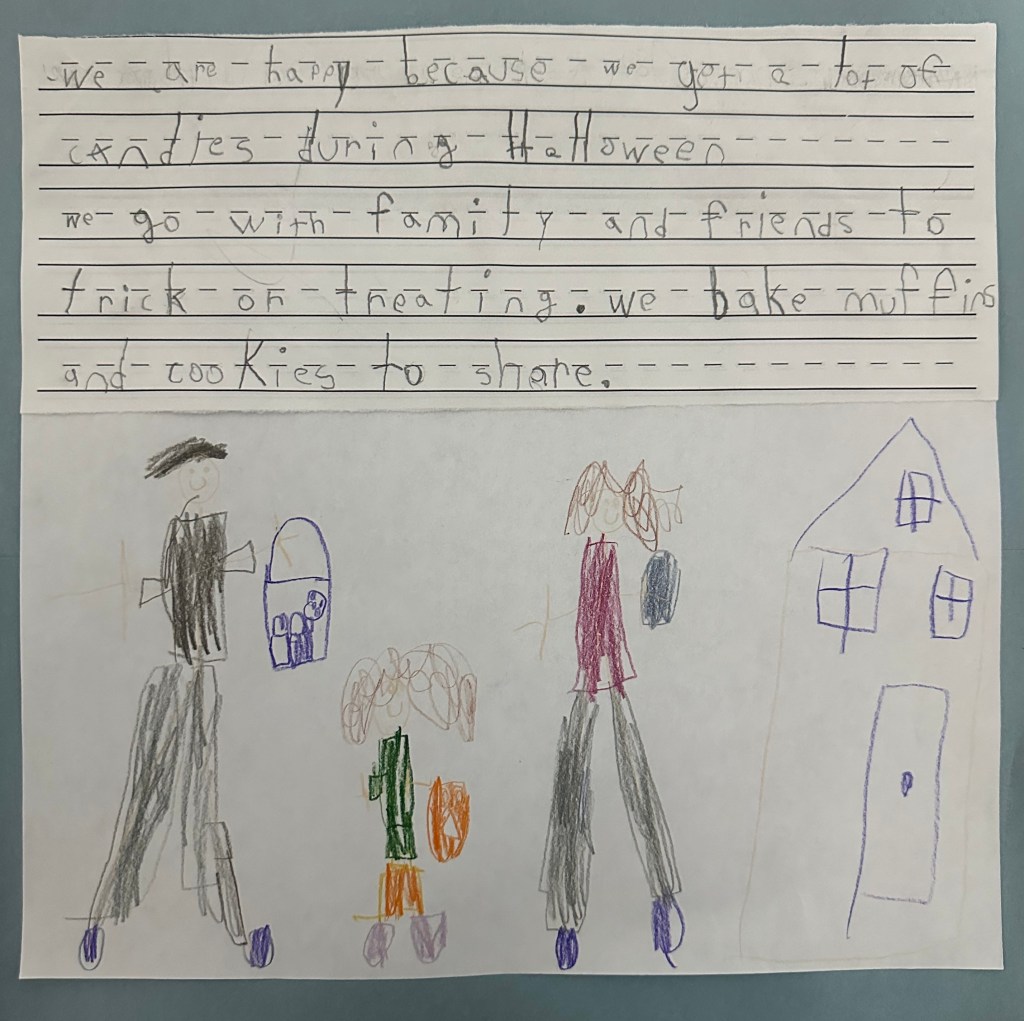 we are happy because we get a lot of
candies during Halloween
we go with family and friends to
trick or treating. we bake muffins
and cookies to share.